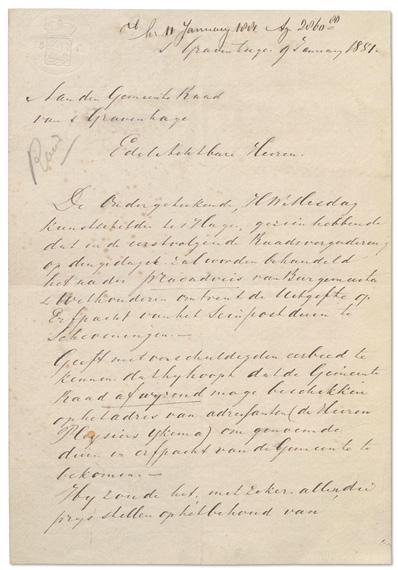 11 January 1881 Ag 286
s Gravenhage 9 January 1881.
Aan den Gemeente Raad
van s Gravenhage
Raad
Edelachtbare Heeren.
De Ondergeteekende, H W Mesdag
kunstschilder te s Hage, gezien hebbende
dat in de eerstvolgende Raadsvergadering
op den 11 dezer zal worden behandeld
het nader praeadvies van Burgemeester
& Wethouderen omtrent de Uitgifte op
Erfpacht van het Seinpostduin te
Scheveningen.—
Geeft met verschuldigden eerbied te
kennen dat hy hoopt dat de Gemeente
Raad afwyzend moge beschikken
op het adres van adressanten (de Heeren
Playsier & Ykema) om genoemde
duin in erfpacht van de Gemeente te
bekomen.—
Hy zoude het, met zeker allen die
prys stellen op het behoud van